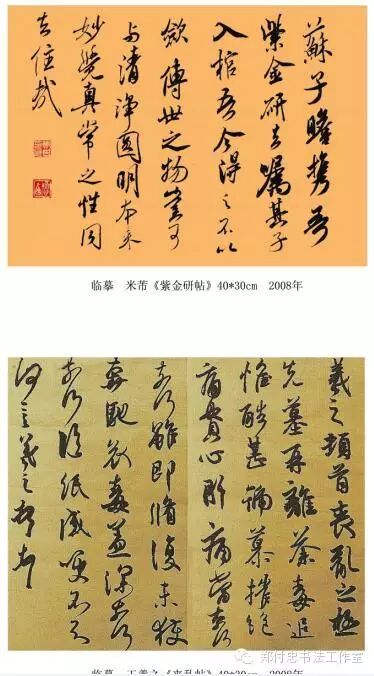 蘇子瞻携吾
紫金研去嘱其子
入棺吾今得之不以
歛傳世之物豈可
与清净圓明本来
妙覺真常之性同
去住哉
临摹 米芾《紫金研帖》40*30cm 2008年
羲之頓首喪亂之極
先墓再離荼毒追
惟酷甚號慕摧絶
痛貫心肝痛當奈何
奈何雖即脩復未獲
奔馳哀毒益深奈何
奈何臨紙感哽不知
何言羲之頓首頓首
临摹 王羲之《丧乱帖》40*30cm 2008年
郑付忠书法工作室